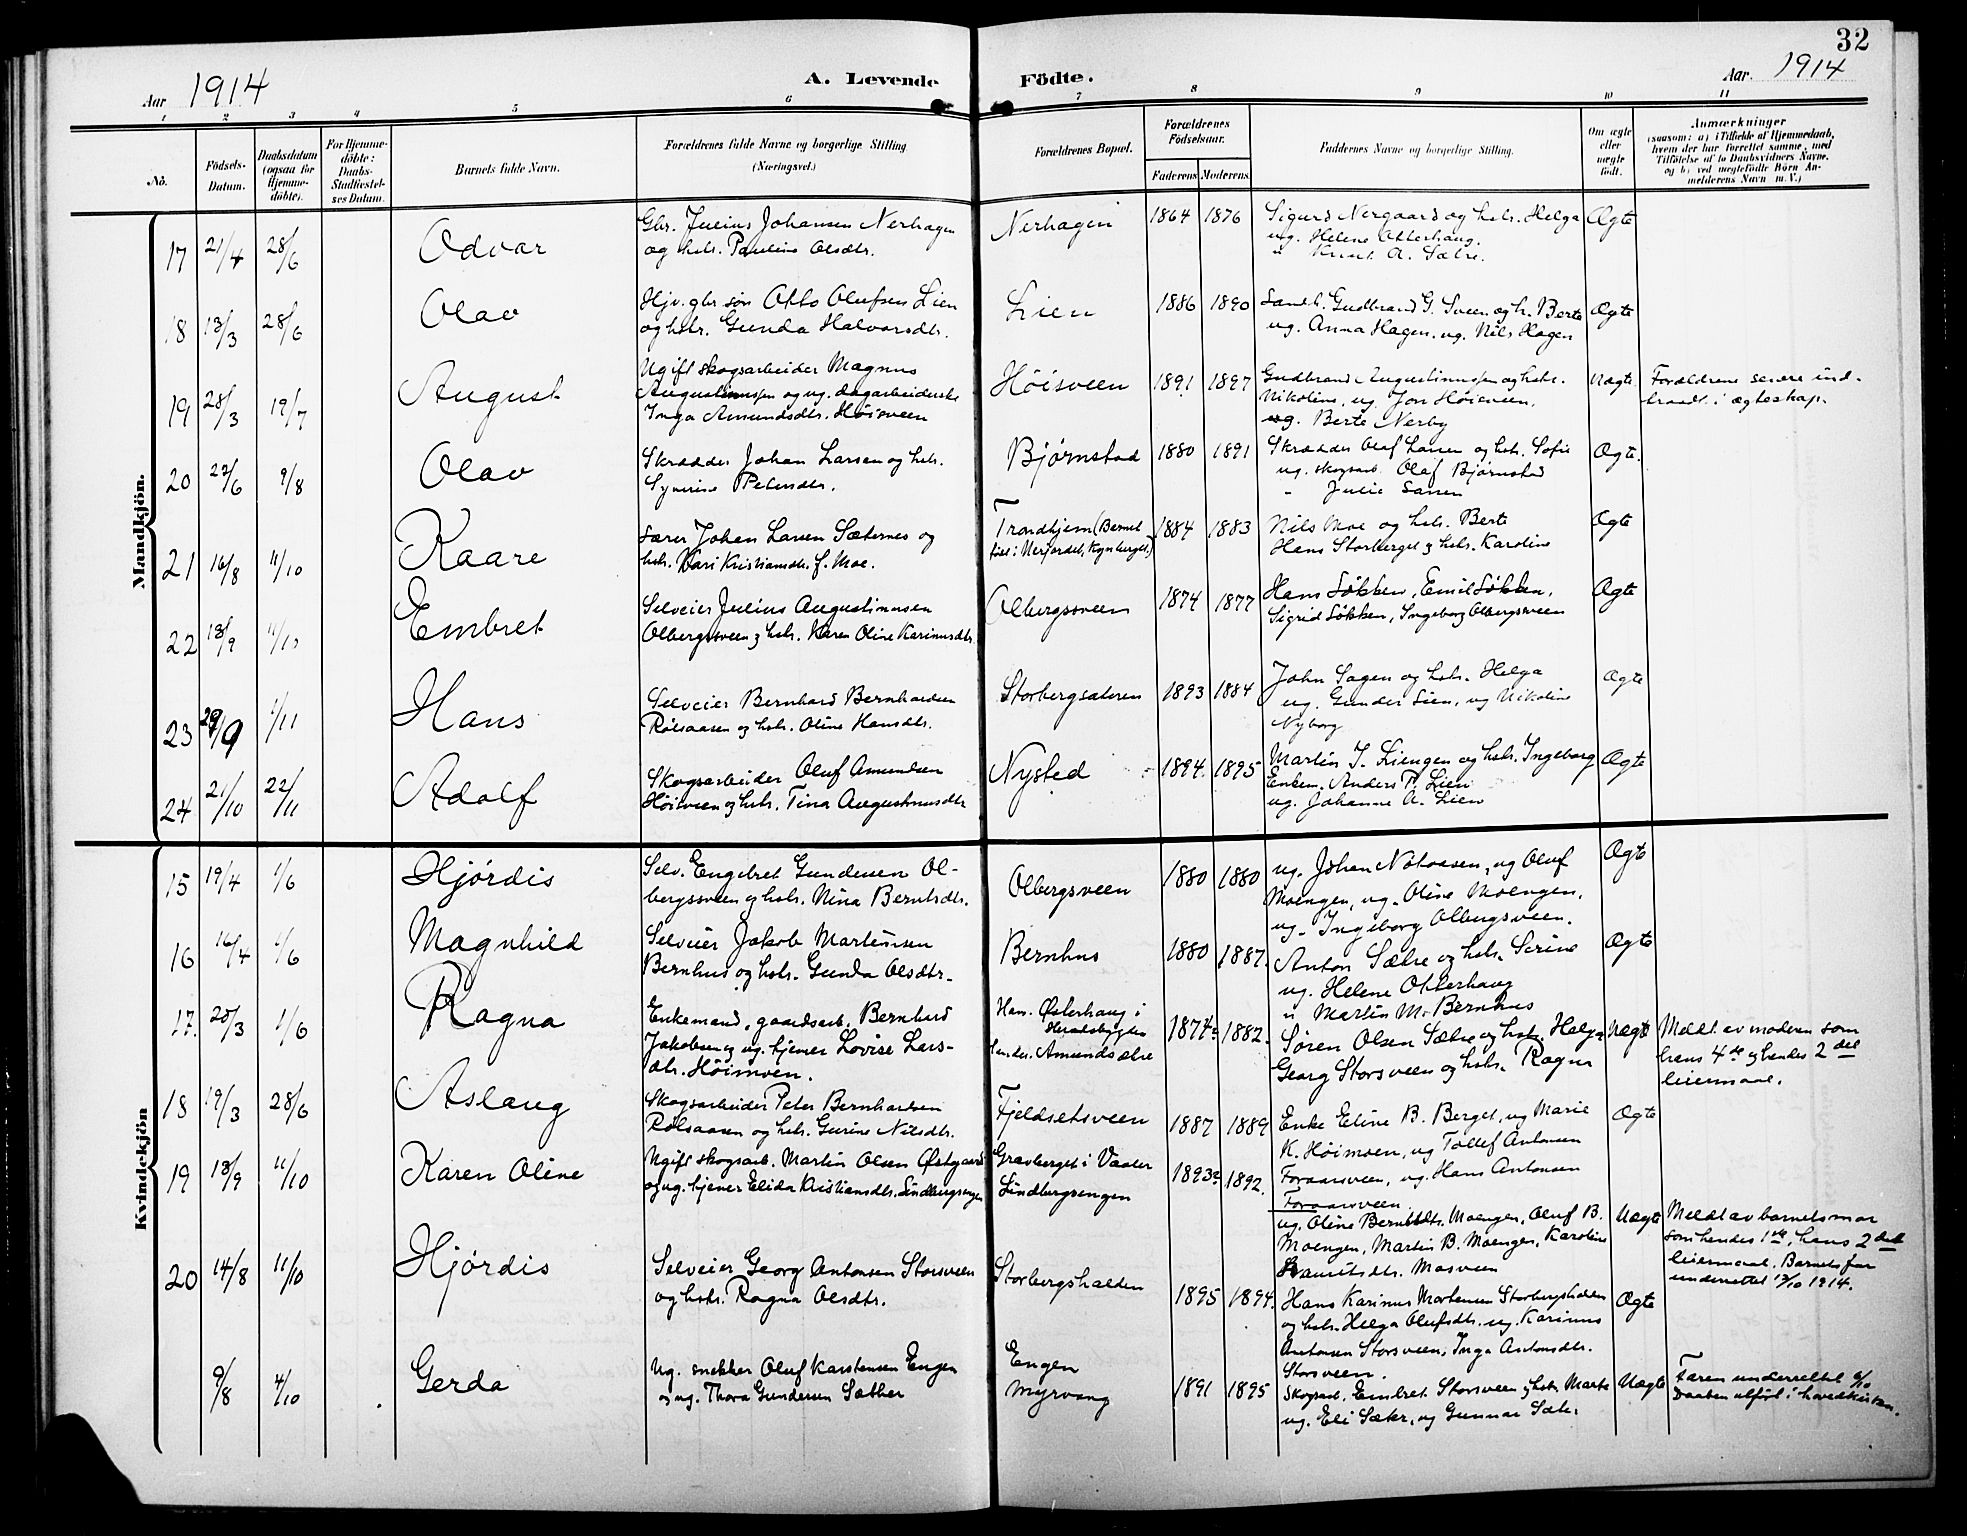 32
Aar 1914
A. Levende Födte.
Aar. 1914
1 2 3 4 5 6 7 8 9 10 11
No.
Födsels-Datum.
Daabsdatum (ogsaa for Hjemme-döbte).
For Hjemme-döbte: Daabs-Stadfæstel-ses Datum.
Barnets fulde Navn.
Forældrenes fulde Navne og borgerlige Stilling (Næringsvei.)
Forældrenes Bopæl.
Forældrenes Födselsaar.
Faderens Moderens
Faddernes Navne og borgerlige Stilling.
Om ægte eller uægte födt.
Anmærkninger
(saasom: a) i Tilfælde af Hjemmedaab, hvem der har forrettet samme, med Tilföielse af to Daabsvidners Navne, og b) ved uægtefödte Börn An-melderens Navn m. V.)
Mandkjön.
17 21/4 28/6 Odvar
Gbr. Julius Johansen Nerhagen
og hstr. Pauline Olsdtr.
Nerhagen 1864 1876
Sigurd Nergaard og hstr. Helga
ug. Helene Otterhaug.
" Knut A. Sætre.
Ægte
18 13/3 28/6 Olav
Hjv. gbr søn Otto Olufsen Lien
og hstr. Gunda Halvorsdtr.
Lien 1886 1890
Gudbrand G. Sveen og h. Berte
ug. Anna Hagen, ug. Nils Hagen
Ægte
19 28/3 19/7 August
Ugift skogsarbeider Magnus
Augustinussen og ug. dagarbeiderske
Inga Amundsdtr. Høisveen
Høisveen 1891 1897
Gudbrand Augustinussen og hstr.
Nikoline, ug. Jon Høisveen,
ug. Berte Nerby
Uægte
Forældrene senere ind-
traadt i ægteskap.
20 22/6 9/8 Olav
Skrædder Johan Larsen og hstr.
Synnine Petersdtr.
Bjørnstad 1880 1891
Skrædder Olaf Larsen og hstr. Sofie
ug. skogsarb. Olaf Bjørnstad
" Julie Larsen
Ægte.
21 16/8 11/10 Kaare
Lærer Johan Larsen Sæternes og
hstr. Kari Kristiansdtr. f. Moe.
Trondhjem (Barnet
født i Nerjordet, Kynberget) 1884 1883
Nils Moe og hstr. Berte
Hans Storberget & hstr. Karoline
Ægte
22 13/9 11/10 Embret
Selveier Julius Augustinussen
Olbergssveen & hstr. Karen Oline Karinusdtr.
Olbergssveen 1874 1877
Hans Løkken, Emil Løkken,
Sigrid Løkken, Ingeborg Olbergsveen
Ægte
23 29/9 1/11 Hans
Selveier Bernhard Bernhardsen
Rølsaasen og hstr. Oline Hansdtr.
Storbergsæteren 1893 1884
John Sagen og hstr. Helga
ug. Gunder Lien, ug Nikoline
Nyborg
Ægte
24 21/10 22/11 Adolf
Skogsarbeider Oluf Amundsen
Høisveen og hstr. Tina Augustinusdtr
Nysted 1894. 1895
Martin J. Liengen og hstr. Ingeborg
Enkem. Anders P. Lien
ug. Johanne A. Lien
Ægte
Kvindekjön
15 19/4 1/6 Hjørdis
Selv. Engebret Gundersen Ol-
bergssveen og hstr. Nina Berntsdtr.
Olbergsveen 1880 1880
ug. Johan Notaasen, ug Oluf
Moengen, ug. Oline Moengen,
ug. Ingeborg Olbergsveen.
Ægte
16 16/4 1/6 Magnhild
Selveier Jakob Martinsen
Bernhus og hstr. Gunda Olsdtr.
Bernhus 1880 1887.
Anton Sætre og hstr. Serine
ug. Helene Otterhaug
" Martin M. Bernhus
Ægte
17. 28/3 1/6 Ragna
Enkemand, gaardsarb. Bernhard
Jakobsen og ug. tjener Lovise Lars-
dtr. Høimoen.
Han. Østerhaug i
Heradsbygden
Hendes. Amundsætre 1874? 1882.
Søren Olsen Sætre og hstr. Helga
Georg Storsveen og hstr. Ragna
Uægte
Meldt av moderen som
hans 4de og hendes 2det
leiermaal.
18 19/3 28/6 Aslaug
Skogsarbeider Peter Bernhardsen
Rølsaasen og hstr. Gurine Nilsdtr.
Fjeldsetsveen 1887 1889
Enke Eline B. Berget, ug Marie
K. Høimoen, ug Tollef Antonsen
Foraarsveen, ug. Hans Antonsen
Foraarsveen
Ægte
19 13/9 11/10 Karen Oline
Ugift skogsarb. Martin Olsen Østgaard
og ug. tjener Elida Kristiansdtr. Lindbergsengen
Gravberget i Vaaler
Lindbergsengen 1893? 1892.
ug. Oline Berntsdtr. Moengen, Oluf B.
Moengen, Martin B. Moengen, Karoline
Masveen
Uægte
Meldt av barnets mor
som hendes 1ste, hans 2det
leiermaal. Barnets far
underrettet 12/10 1914.
20 14/8 11/10 Hjørdis
Selveier Georg Antonsen Storsveen
og hstr. Ragna Olsdtr.
Storbergshalden 1895 1894.
Hans Karinus Mortensen Storbergshalden
og hstr. Helga Olufsdtr. ug. Karinus
Antonsen Storsveen, Inga Antonsdtr.
Storsveen.
Ægte
9/8 4/10 Gerda
Ug. snekker Oluf Karstensen Engen
og ug. Thora Gundersen Sæther
Engen
Myrvang 1891 1895
Skogsarb. Embret Storsveen & hstr Marte
ug. Eli Sætre, ug Gunnar Sætr.
Uægte
Faren underrettet 6/10
Daaben utført i hovedkirken.